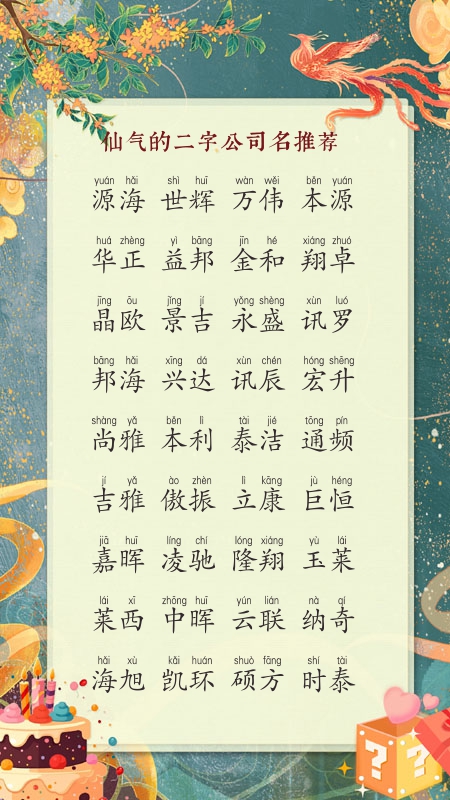 仙气的二字公司名推荐
yuán hǎi shì huī wàn wěi běn yuán
源海 世辉 万伟 本源
huá zhèng yì bāng jīn hé xiáng zhuó
华正 益邦 金和 翔卓
jīng ōu jǐng jí yǒng shèng xùn luó
晶欧 景吉 永盛 讯罗
bāng hǎi xīng dá xùn chén hóng shēng
邦海 兴达 讯辰 宏升
shàng yǎ běn lì tài jié tōng pín
尚雅 本利 泰洁 通频
jí yǎ ào zhèn lì kāng jù héng
吉雅 傲振 立康 巨恒
jiā huī líng chí lóng xiáng yù lái
嘉晖 凌驰 隆翔 玉莱
lái xī zhōng huī yún lián nà qí
莱西 中晖 云联 纳奇
hǎi xù kǎi huán shuò fāng shí tài
海旭 凯环 硕方 时泰